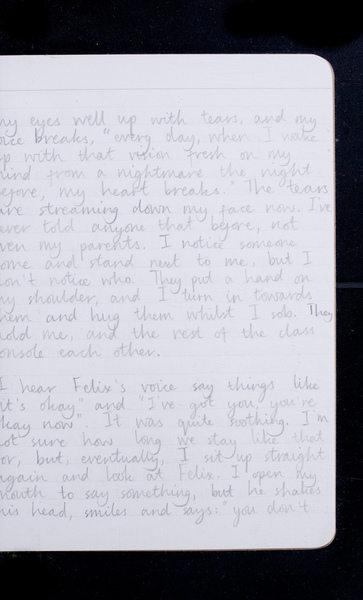 my eyes well up with tears, and my
oice breaks, "every day, when I wake
up with that vision fresh on my
mind from a nightmare the night
efore, my heart breaks." The tears
are streaming down my face now. I've
ever told anyone that before, not
ven my parents. I notice someone
ome and stand next to me, but I
on't notice who. They put a hand on
my shoulder, and I turn in towards
hem and hug them whilst I sob. They
hold me, and the rest of the class
onsole each other.
I hear Felix's voice say things like
it's okay" and "I've got you, you're
kay now". It was quite soothing. I'm
not sure how long we stay like that
for, but, eventually, I sit up straight
again and look at Felix. I open my
mouth to say something, but he shakes
his head, smiles and says: "you don't